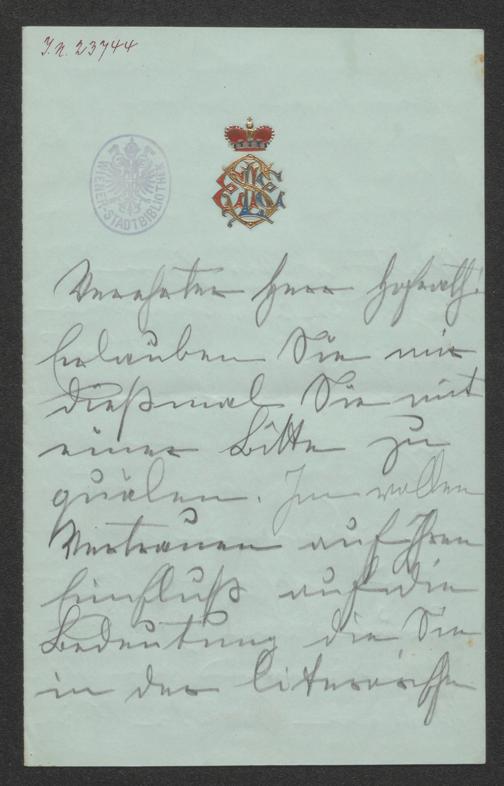 I.N. 23744
WIENER-STADTBIBLIOTHEK
Verehrter Herr Hofrath!
Erlauben Sie mir
dießmal Sie mit
einer Bitte zu
quälen. Im vollen
Vertrauen auf Ihren
Einfluß auf die
Bedeutung die Sie
in der literarischen